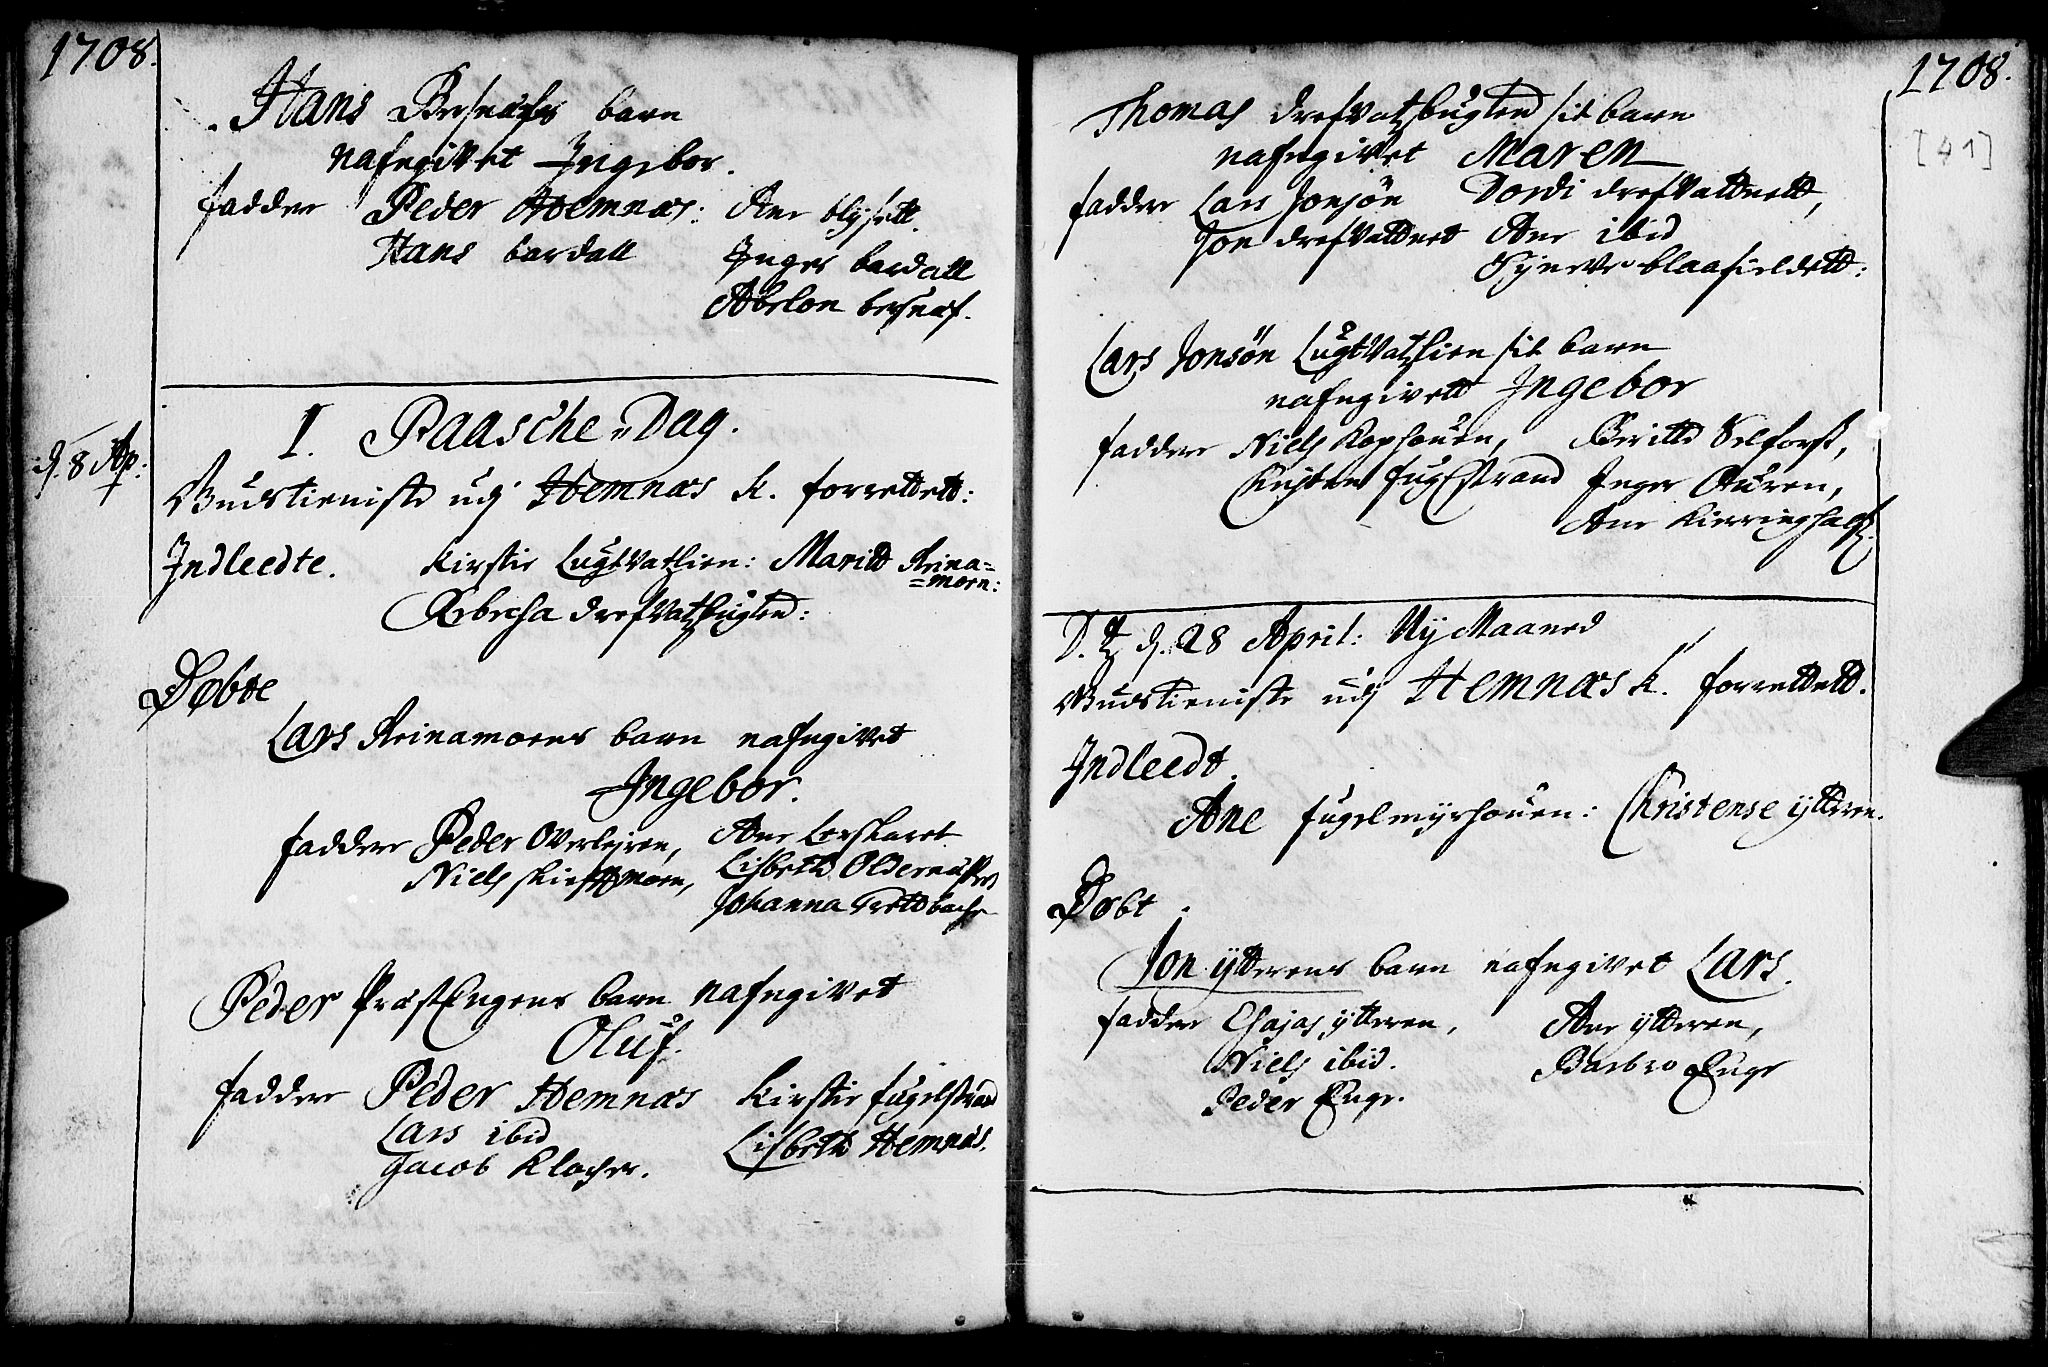 1708.
Hans Bresnæfs barn
nafngivet Ingebor.
faddre Peder Hemnæs: Ane blysett.
Hans bardall Inger bardall
Abelon
I. Paasche-Dag.
d. 8 Ap:
Gudstieniste udj Hemnæs K. forrettett:
Indleedte. Kirstie Lugtvatslien: Maritt Reina=
=moen:
Rebecha drefvatzbugten:
Døbte
Lars Reinamoens barn nafngivet
Ingebor.
faddre Peder Overleyren, Ane Leerskaret
Niels skiettmoen, Lisbeth Oldernæsset
Johanna Brettbache
Peder PræstEngens barn nafngivet
Oluf.
faddre Peder Hemnæs Kirstie fugelstrand
Lars ibid Lisbeth Hemnæs.
Jacob Klocher.
1708.
[41]
Thomas drefvatzbugten sit barn
nafngivet Maren
faddre Lars Jonsøn Dordi drefvattnett,
Jon drefvattnet Ane ibid
Syneve blaafieldett:
Lars Jonsøn Lugtvatzlien sit barn
nafngivett Ingebor
faddre Niels Kophouen, Beritte Selforss,
Christen fuglstrand Inger Auren,
Ane Kierringhals.
D. d. 28 April: Ny Maaned
Gudstieniste udj Hemnæs K. forrettett.
Indleedt.
Ane fugelmyrhouen: Christense ytteren.
Døbt.
Jon ytterens barn nafngivet Lars.
faddre Esajas ytteren, Ane ytteren,
Niels ibid. Barbro Enge
Peder Enge.